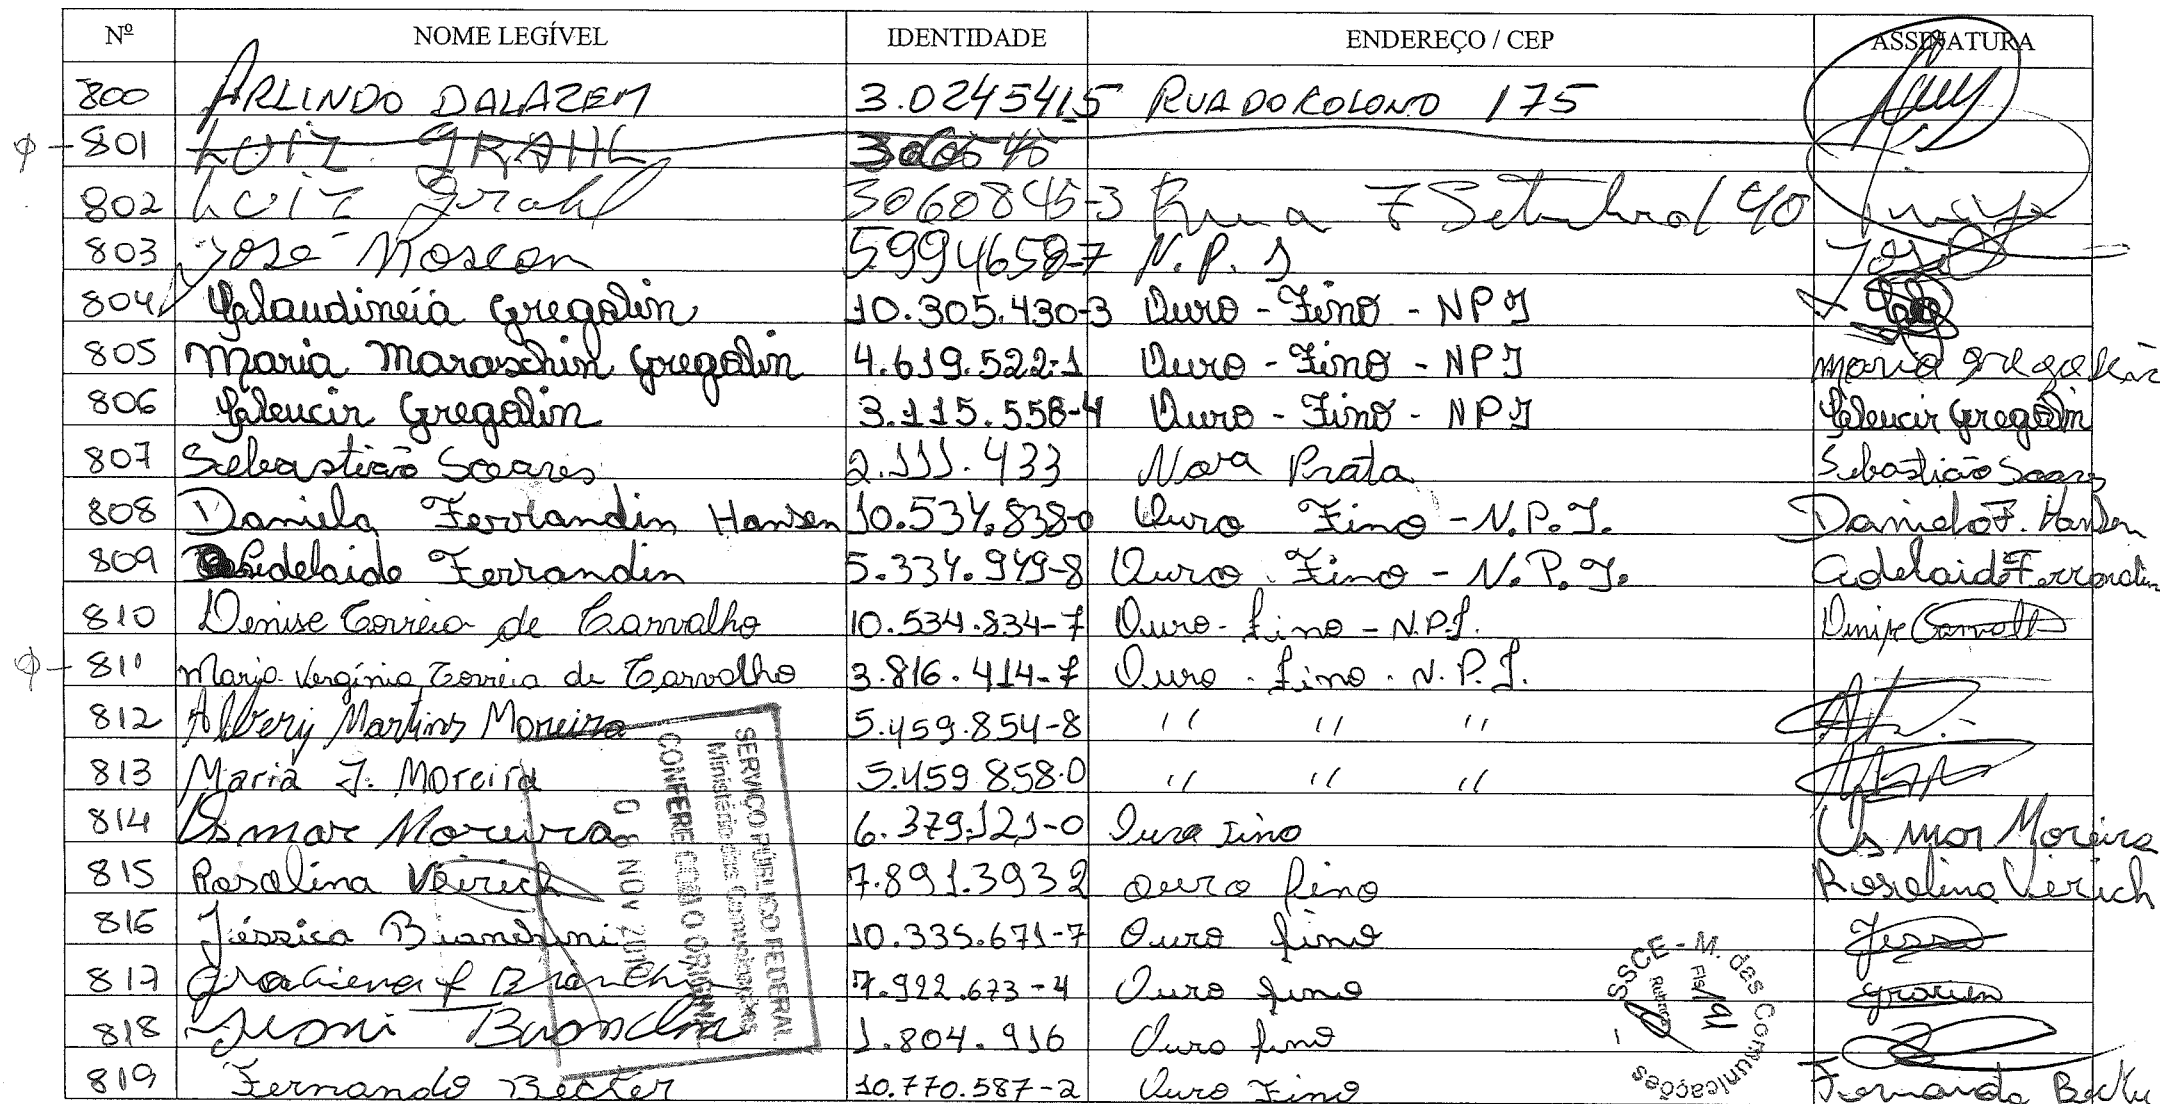 Nº NOME LEGÍVEL IDENTIDADE ENDEREÇO / CEP ASSINATURA
800 ARLINDO DALAZEM 3.0245415 RUA DO COLONO 175
φ - 801 LUIZ GRAHL
802 LUIZ Grahl 3060845-3 Rua 7 Setembro 140
803 José Moscon 5994658-7 N.P.I José
804 Glaudineia Gregolin 10.305.430-3 Ouro - Fino - NPI
805 Maria Maraschin Gregolin 4.619.522-1 Ouro - Fino - NPI Maria Gregolin
806 Gleucir Gregolin 3.115.558-4 Ouro - Fino - NPI Gleucir Gregolin
807 Sebastião Soares 2.111.433 Nova Prata Sebastião Soares
808 Daniela Ferrandin Hansen 10.534.838-0 Ouro Fino - N.P.I. Daniela F. Hansen
809 Adelaide Ferrandin 5.334.949-8 Ouro Fino - N.P.I. Adelaide Ferrandin
810 Denise Correia de Carvalho 10.534.834-7 Ouro - fino - N.P.I. Denise Carvalho
φ - 811 Maria Vergínia Correia de Carvalho 3.816.414-7 Ouro - fino - N.P.I.
812 Albery Martins Moreira 5.459.854-8 " " "
813 Maria J. Moreira 5.459.858-0 " " "
814 Osmar Moreira 6.379.121-0 Ouro Fino Osmar Moreira
815 Rosalina Veirich 7.891.393 2 ouro fino Rosalina Verich
816 Jéssica Bianchini 10.335.671-7 Ouro fino
817 7.922.673-4 Ouro fino
818 1.804.916 Ouro fino
819 Fernando Becker 10.770.587-2 Ouro Fino Fernando Becker
SERVIÇO PÚBLICO FEDERAL
Ministério das Comunicações
CONFERE COM O ORIGINAL
0 8 NOV 2010
SSCE - M. das Comunicações
Fls 191
Rubrica